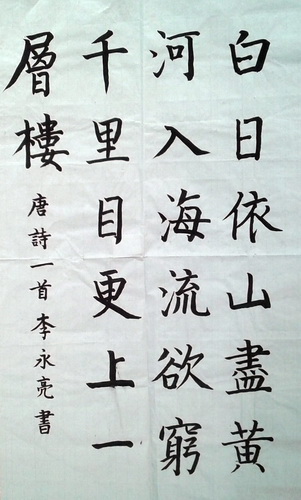 白日依山盡黄
河入海流欲窮
千里目更上一
層樓
唐詩一首李永亮書